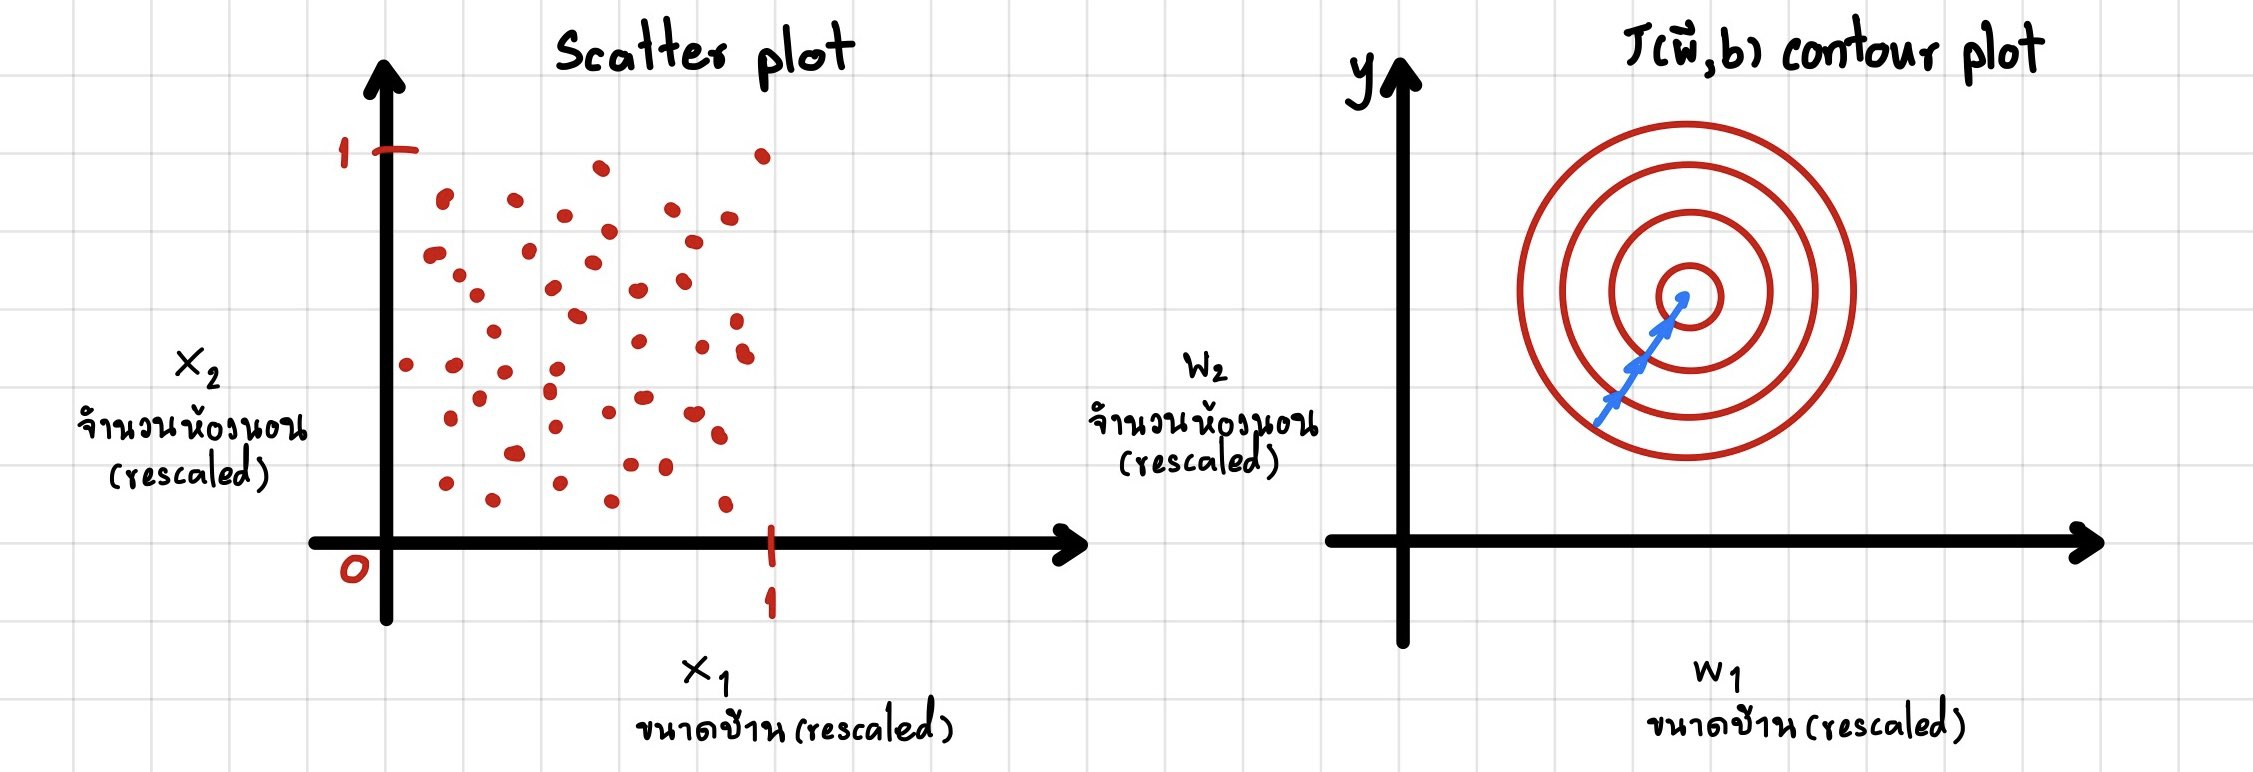 Scatter plot
1
x₂
จำนวนห้องนอน
(rescaled)
0
1
x₁
ขนาดบ้าน (rescaled)
J(w⃗,b) contour plot
y
w₂
จำนวนห้องนอน
(rescaled)
w₁
ขนาดบ้าน (rescaled)